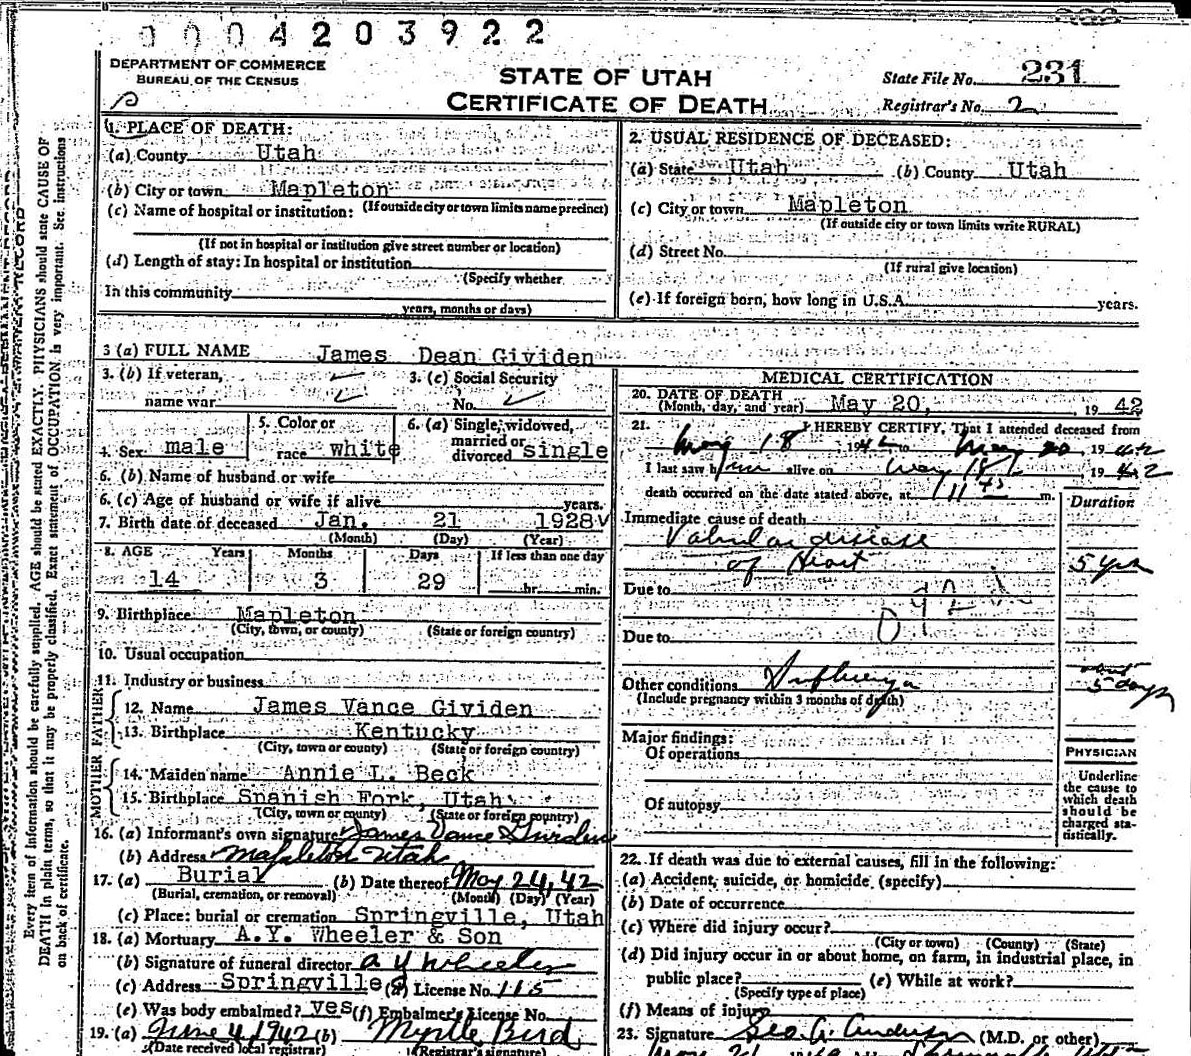 0004203922
DEPARTMENT OF COMMERCE
BUREAU OF THE CENSUS
STATE OF UTAH
CERTIFICATE OF DEATH
State File No. 231
Registrar's No. 2
1. PLACE OF DEATH:
(a) County Utah
(b) City or town Mapleton
(If outside city or town limits name precinct)
(c) Name of hospital or institution:
(If not in hospital or institution give street number or location)
(d) Length of stay: In hospital or institution
(Specify whether
In this community
years, months or days)
2. USUAL RESIDENCE OF DECEASED:
(a) State Utah (b) County Utah
(c) City or town Mapleton
(If outside city or town limits write RURAL)
(d) Street No.
(If rural give location)
(e) If foreign born, how long in U.S.A. years.
3 (a) FULL NAME James Dean Gividen
3. (b) If veteran,
name war
3. (c) Social Security
No.
4. Sex male
5. Color or
race white
6. (a) Single, widowed,
married or
divorced single
6. (b) Name of husband or wife
6. (c) Age of husband or wife if alive years.
7. Birth date of deceased Jan. 21 1928
(Month) (Day) (Year)
8. AGE Years Months Days If less than one day
14 3 29 hr. min.
9. Birthplace Mapleton
(City, town, or county) (State or foreign country)
10. Usual occupation
11. Industry or business
FATHER
12. Name James Vance Gividen
13. Birthplace Kentucky
(City, town or county) (State or foreign country)
MOTHER
14. Maiden name Annie L. Beck
15. Birthplace Spanish Fork, Utah
(City, town or county) (State or foreign country)
16. (a) Informant's own signature James Vance Gividen
(b) Address Mapleton Utah
17. (a) Burial (b) Date thereof May 24, 42
(Burial, cremation, or removal) (Month) (Day) (Year)
(c) Place: burial or cremation Springville, Utah
18. (a) Mortuary A.Y. Wheeler & Son
(b) Signature of funeral director A Y Wheeler
(c) Address Springville (d) License No. 115
(e) Was body embalmed? yes (f) Embalmer's License No.
19. (a) June 4, 1942 (b) Myrtle Bird
(Date received local registrar) (Registrar's signature)
MEDICAL CERTIFICATION
20. DATE OF DEATH
(Month, day, and year) May 20, 1942
21. I HEREBY CERTIFY, That I attended deceased from
May 18, 1942 to May 20 1942
I last saw him alive on May 18 1942
death occurred on the date stated above, at m.
Duration
Immediate cause of death
Valvular disease
of Heart 5 yrs
Due to
Due to
Other conditions Influenza about
5 days
(Include pregnancy within 3 months of death)
Major findings:
Of operations
Of autopsy
PHYSICIAN
Underline
the cause to
which death
should be
charged sta-
tistically.
22. If death was due to external causes, fill in the following:
(a) Accident, suicide, or homicide (specify)
(b) Date of occurrence
(c) Where did injury occur?
(City or town) (County) (State)
(d) Did injury occur in or about home, on farm, in industrial place, in
public place? (e) While at work?
(Specify type of place)
(f) Means of injury
23. Signature Geo A. Anderson (M.D. or other)
Every item of information should be carefully supplied. AGE should be stated EXACTLY. PHYSICIANS should state CAUSE OF
DEATH in plain terms, so that it may be properly classified. Exact statement of OCCUPATION is very important. See instructions
on back of certificate.